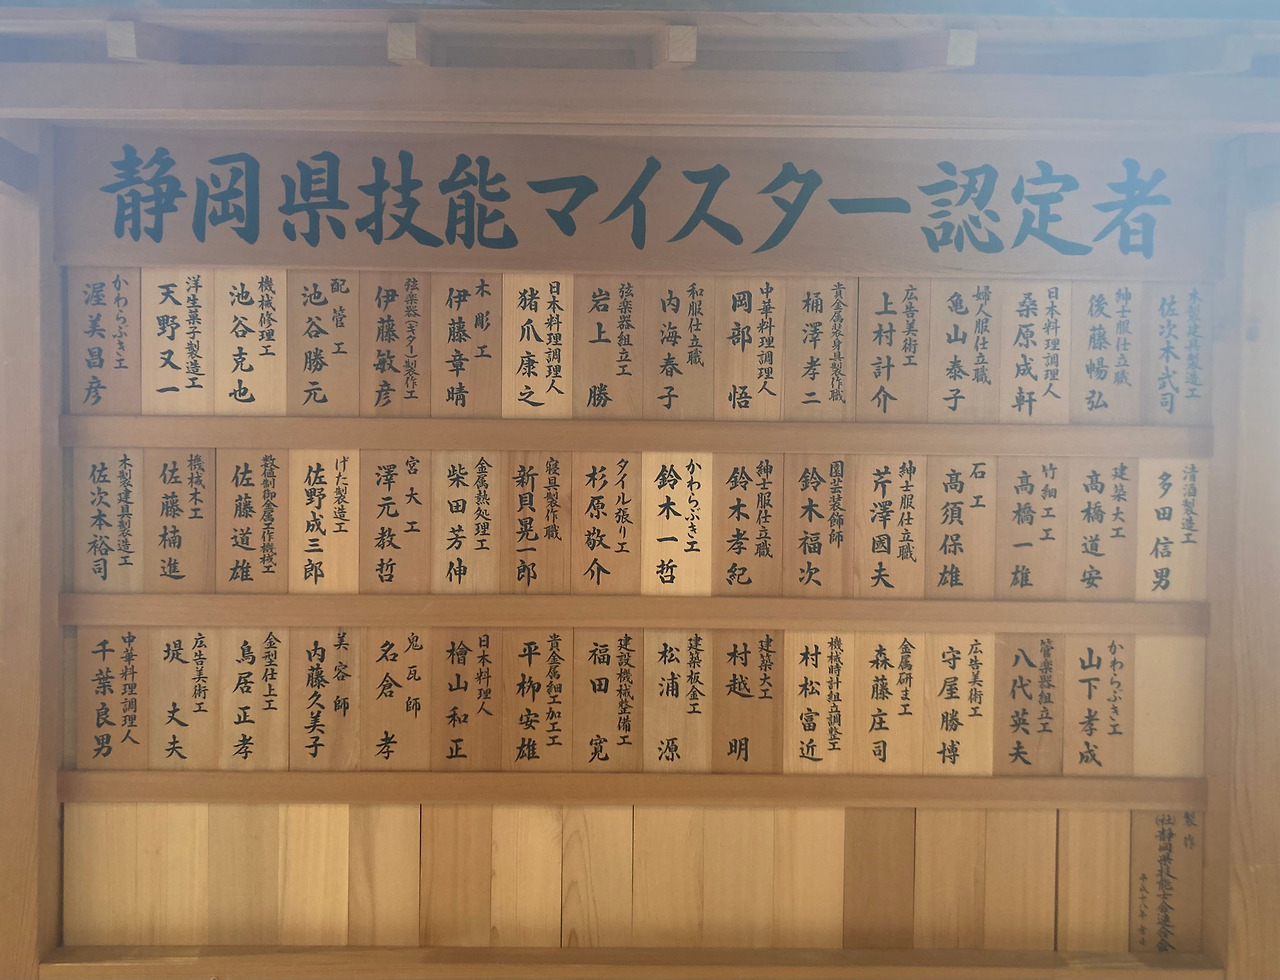 静岡県技能マイスター認定者
かわらぶき工
渥美昌彦
洋生菓子製造工
天野又一
機械修理工
池谷克也
配管工
池谷勝元
弦楽器(ギター)製作工
伊藤敏彦
木彫工
伊藤章晴
日本料理調理人
猪爪康之
弦楽器組立工
岩上勝
和服仕立職
内海春子
中華料理調理人
岡部悟
貴金属装身具製作職
桶澤孝二
広告美術工
上村計介
婦人服仕立職
亀山泰子
日本料理調理人
桑原成軒
紳士服仕立職
後藤暢弘
木製建具製造工
佐次本武司
木製建具製造工
佐次本裕司
機械木工
佐藤楠進
数値制御金属工作機械工
佐藤道雄
げた製造工
佐野成三郎
宮大工
澤元教哲
金属熱処理工
柴田芳伸
寝具製作職
新貝晃一郎
タイル張り工
杉原敬介
かわらぶき工
鈴木一哲
紳士服仕立職
鈴木孝紀
園芸装飾師
鈴木福次
紳士服仕立職
芹澤國夫
石工
高須保雄
竹細工工
高橋一雄
建築大工
高橋道安
清酒製造工
多田信男
中華料理調理人
千葉良男
広告美術工
堤丈夫
金型仕上工
鳥居正孝
美容師
内藤久美子
鬼瓦師
名倉孝
日本料理人
檜山和正
貴金属細工加工工
平栁安雄
建設機械整備工
福田寛
建築板金工
松浦源
建築大工
村越明
機械時計組立調整工
村松富近
金属研ま工
森藤庄司
広告美術工
守屋勝博
管楽器組立工
八代英夫
かわらぶき工
山下孝成
製作
(社)静岡県技能士会連合会
平成十八年